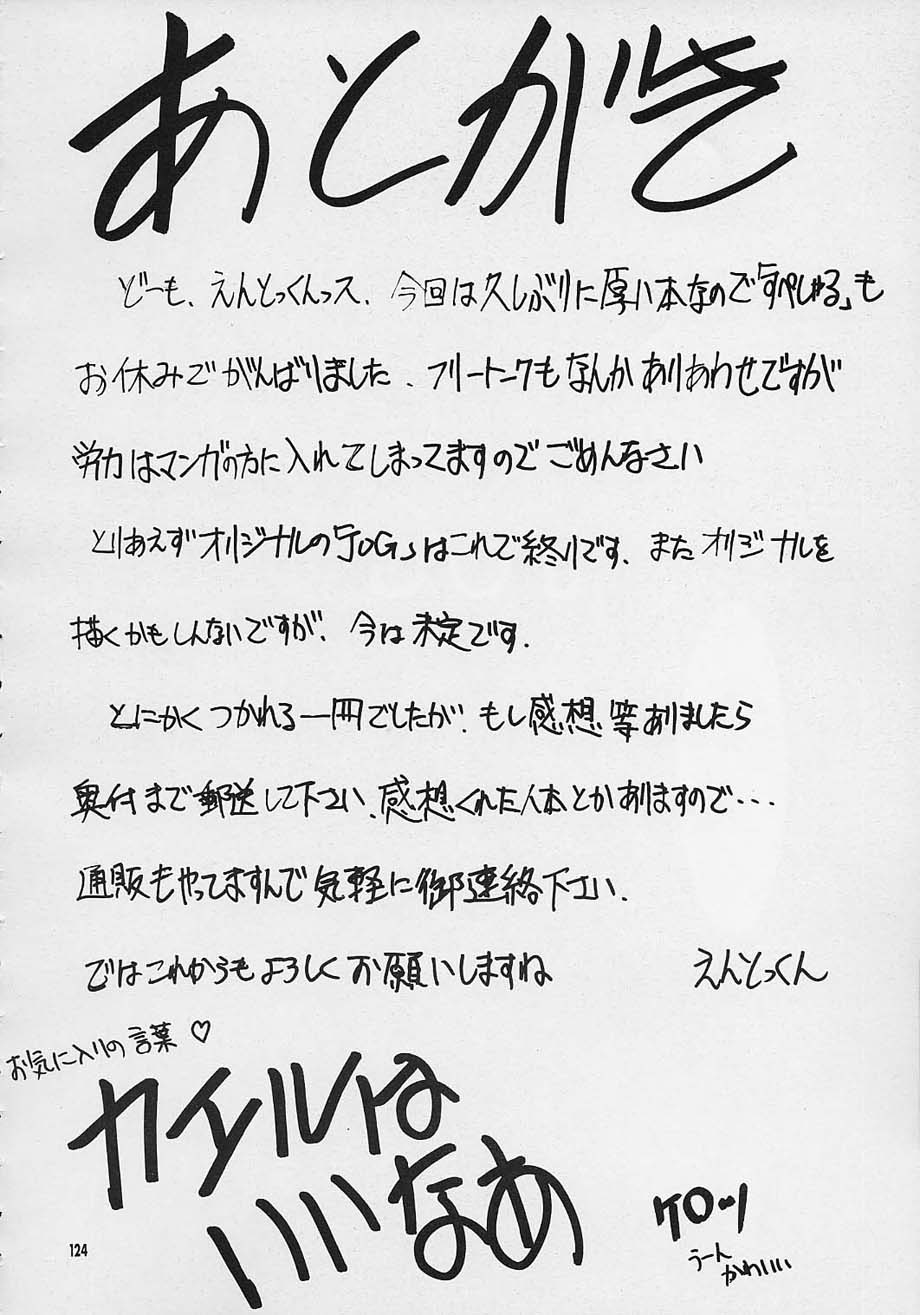 あとがき
どーも、えんとっくんっス、今回は久しぶりに厚い本なので「すぺしゃる」も
お休みでがんばりました、フリートークもなんかありあわせですが
労力はマンガの方に入れてしまってますのでごめんなさい
とりあえずオリジナルの「JOG」はこれで終りです、またオリジナルを
描くかもしんないですが、今は未定です.
とにかくつかれる一冊でしたが、もし感想等ありましたら
奥付まで郵送して下さい、感想くれた人本とかありますので・・・
通販もやってますんで気軽に御連絡下さい.
ではこれからもよろしくお願いしますね えんとっくん
お気に入りの言葉♡
カイルは
いいなあ
ケロッ
うーん
かわいい
124